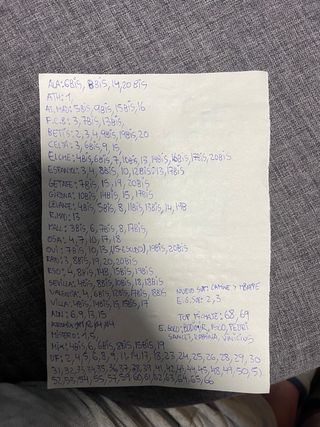 ALA: 6BIS, 8BIS, 14, 20BIS
ATH: 1,
AT. MAD: 5BIS, 9BIS, 15BIS, 16
F.C.B: 3, 7BIS, 13BIS,
BETIS: 2, 3, 4, 9BIS, 19BIS, 20
CELTA: 3, 6BIS, 9, 15,
ELCHE: 4BIS, 6BIS, 7, 10BIS, 13, 14BIS, 16BIS, 17BIS, 20BIS
ESPANYOL: 3, 4, 8BIS, 10, 12BIS, 13, 17BIS
GETAFE: 7BIS, 15, 19, 20BIS
GIRONA: 10BIS, 14BIS, 15, 17BIS
LEVANTE: 4BIS, 5BIS, 8, 11BIS, 13BIS, 14, 19B
R.MAD: 13
MALL: 3BIS, 6, 7BIS, 8, 17BIS,
OSA: 4, 7, 10, 17, 18
OVI: 7BIS, 10, 13, 15, 19BIS, 20BIS
RAYO: 3, 8BIS, 19, 20, 20BIS
RSO: 4, 8BIS, 14B, 15BIS, 19BIS
SEVILLA: 4BIS, 8BIS, 10BIS, 18, 18BIS
VALENCIA: 4, 6BIS, 12BIS, 17BIS, 18BIS
VILLA: 4BIS, 14BIS, 15, 15BIS, 17
NUEVO SUP: LAMINE Y MBAPPE
E.G. SUP: 2, 3
ADN: 6, 9, 13, 15
TOP FICHAJE: 68, 69
MISTERO: 1, 5,
E. GOLD: PEDRI
VINICIUS
MIX: 4BIS, 6, 6BIS, 8BIS, 15BIS, 19
UF: 2, 4, 5, 6, 8, 9, 11, 14, 17, 18, 23, 24, 25, 26, 28, 29, 30
31, 32, 33, 34, 35, 36, 37, 38, 39, 41, 42, 43, 44, 45, 48, 49, 50, 51
52, 53, 54, 55, 57, 59, 60, 61, 62, 63, 64, 65, 66